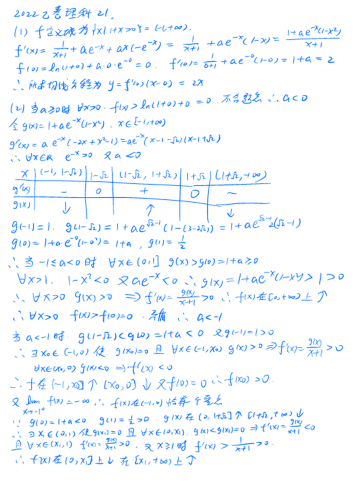 2022乙卷理科21.
(1) f定义域为{x|1+x>0}=(-1,+∞).
f'(x)=1/(x+1)+ae^{-x}+ax(-e^{-x})=1/(x+1)+ae^{-x}(1-x)=(1+ae^{-x}(1-x²))/(x+1)
f(0)=ln(1+0)+a·0·e^{-0}=0. f'(0)=1/(0+1)+ae^{-0}(1-0)=1+a=2
∴所求切线方程为y=f'(0)(x-0)=2x
(2)当a≥0时 ∀x>0. f(x)>ln(1+0)+0=0. 不合题意 ∴a<0
令g(x)=1+ae^{-x}(1-x²). x∈[-1,+∞)
g'(x)=ae^{-x}(-2x+x²-1)=ae^{-x}(x-1-√2)(x-1+√2)
∵∀x∈R e^{-x}>0 又a<0
x | (-1,1-√2) | 1-√2 | (1-√2,1+√2) | 1+√2 | (1+√2,+∞)
g'(x) | - | 0 | + | 0 | -
g(x) | ↓ | | ↑ | | ↓
g(-1)=1. g(1-√2)=1+ae^{√2-1}(1-(3-2√2))=1+ae^{√2-1}2(√2-1)
g(0)=1+ae^{-0}(1-0²)=1+a, g(1)=1
∴当-1≤a<0时 ∀x∈(0,1] g(x)>g(0)=1+a≥0
∀x>1. 1-x²<0 又ae^{-x}<0 ∴g(x)=1+ae^{-x}(1-x²)>1>0
∴∀x>0 g(x)>0 ⇒f'(x)=g(x)/(x+1)>0 ∴f(x)在[0,+∞)上↑
∴∀x>0 f(x)>f(0)=0. 矛盾 ∴a<-1
当a<-1时. g(1-√2)<g(0)=1+a<0 又g(-1)=1>0
∴∃x₀∈(-1,0)使g(x₀)=0且∀x∈(-1,x₀) g(x)>0⇒f'(x)=g(x)/(x+1)>0
∀x∈(x₀,0) g(x)<0⇒f'(x)<0
∴f在(-1,x₀]↑[x₀,0]↓又f(0)=0∴f(x₀)>0.
又lim_{x→-1⁺} f(x)=-∞ ∴f(x)在(-1,0)恰有个零点
∵g(0)=1+a<0 g(1)=1>0. g(x)在(0,1+√2]↑[1+√2,+∞)↓
∴∃x₁∈(0,1)使g(x₁)=0且∀x∈(0,x₁). g(x)<g(x₁)=0⇒f'(x)=g(x)/(x+1)<0
且∀x∈(x₁,1) f'(x)=g(x)/(x+1)>0. 又x≥1时f'(x)>1/(x+1)>0.
∴f(x)在(0,x₁]上↓在[x₁,+∞)上↑